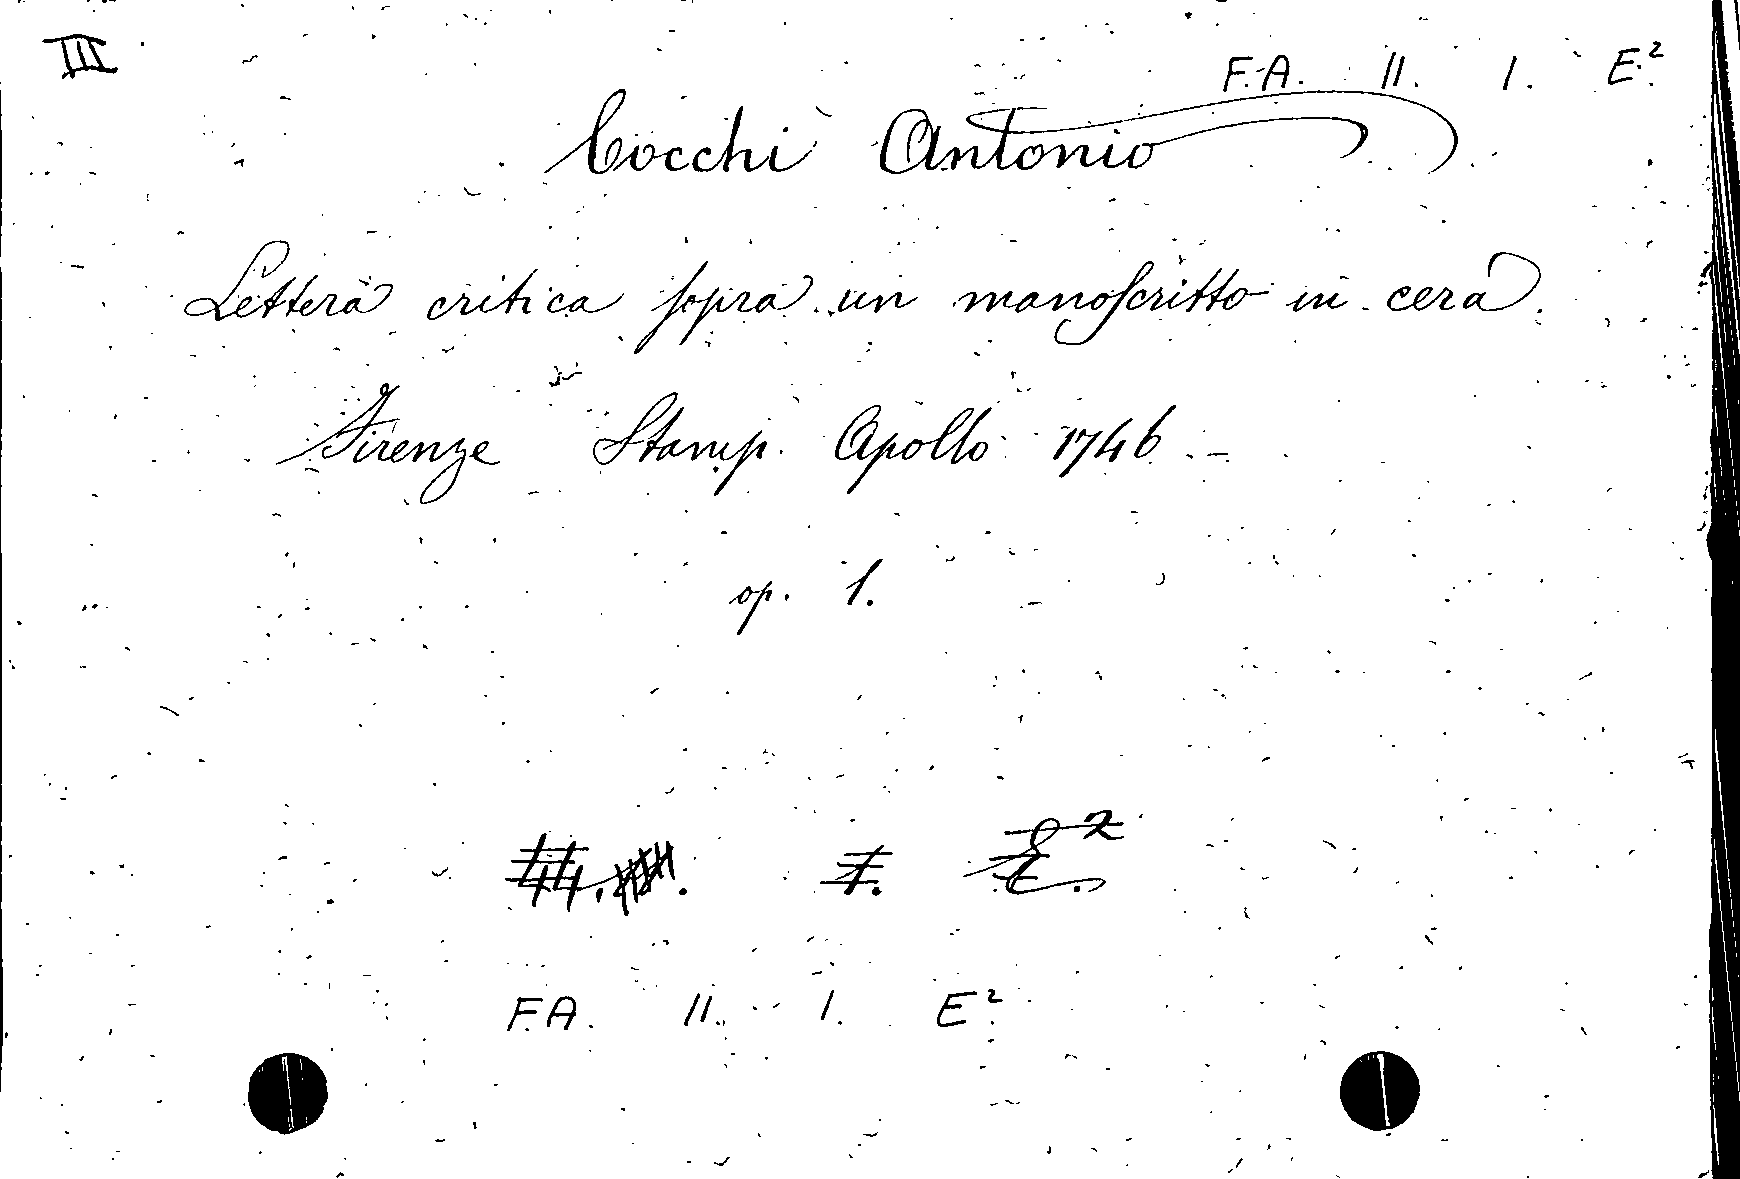 III
F.A. II. I. E.²
Cocchi Antonio
Lettera critica sopra un manoscritto in cera.
Firenze Stamp. Apollo 1746 -
op. 1.
F.A. II. I. E.²